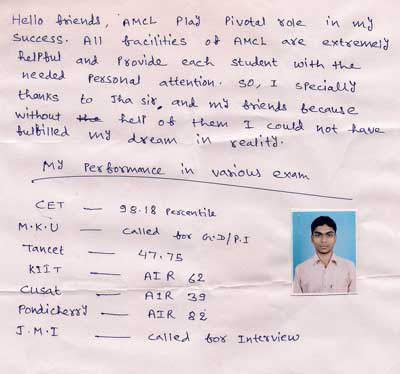 Hello friends, AMCL Play Pivotal role in my
success. All facilities of AMCL are extremely
helpful and Provide each student with the
needed Personal attention. SO, I specially
thanks to Jha sir, and my friends because
without the help of them I could not have
fulfilled my dream in reality.
My Performance in various exam
CET — 98.18 Percentile
M.K.U — called for G.D/P.I
Tancet — 47.75
KIIT — AIR 62
Cusat — AIR 39
Pondicherry — AIR 82
J.M.I — called for Interview